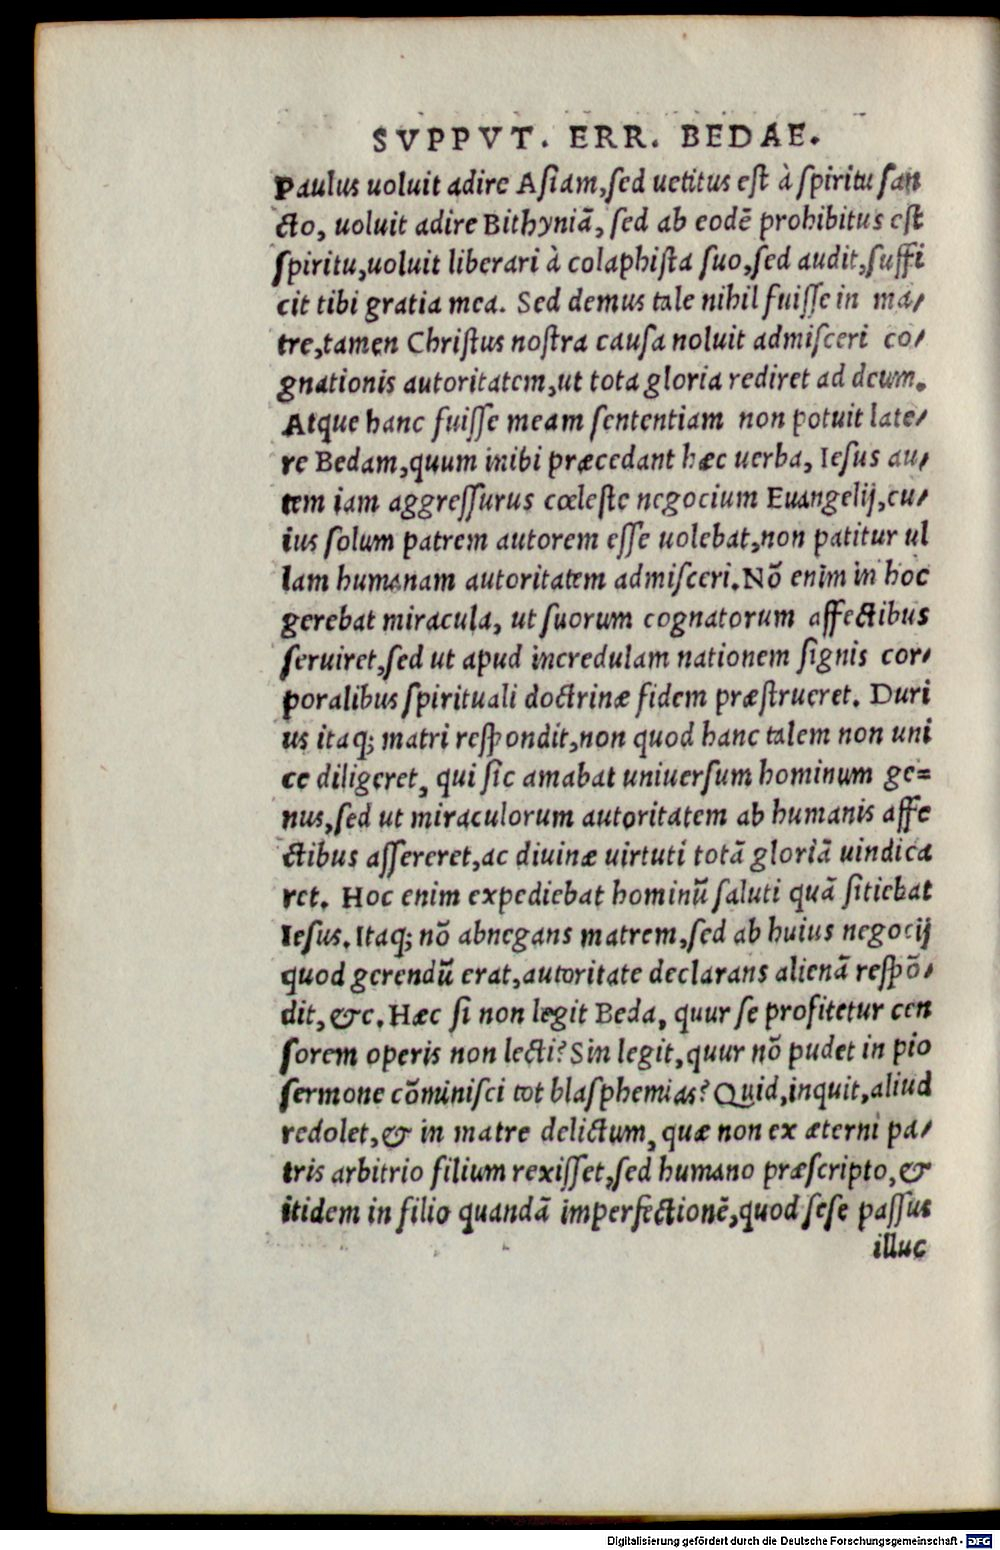 SVPPVT. ERR. BEDAE.
Paulus uoluit adire Asiam,sed uetitus est à spiritu san
cto, uoluit adire Bithyniā, sed ab eodē prohibitus est
spiritu,uoluit liberari à colaphista suo,sed audit,suffi
cit tibi gratia mea. Sed demus tale nihil fuisse in ma/
tre,tamen Christus nostra causa noluit admisceri co/
gnationis autoritatem,ut tota gloria rediret ad deum.
Atque hanc fuisse meam sententiam non potuit late/
re Bedam,quum inibi præcedant hæc uerba, Iesus au/
tem iam aggressurus cœleste negocium Euangelij,cu/
ius solum patrem autorem esse uolebat,non patitur ul
lam humanam autoritatem admisceri.Nō enim in hoc
gerebat miracula, ut suorum cognatorum affectibus
seruiret,sed ut apud incredulam nationem signis cor/
poralibus spirituali doctrinæ fidem præstrueret. Duri
us itaq; matri respondit,non quod hanc talem non uni
ce diligeret, qui sic amabat uniuersum hominum ge=
nus,sed ut miraculorum autoritatem ab humanis affe
ctibus assereret,ac diuinæ uirtuti totā gloriā uindica
ret. Hoc enim expediebat hominū saluti quā sitiebat
Iesus.Itaq; nō abnegans matrem,sed ab huius negocij
quod gerendū erat,autoritate declarans alienā respō/
dit,&c.Hæc si non legit Beda, quur se profitetur cen
sorem operis non lecti?Sin legit,quur nō pudet in pio
sermone cōminisci tot blasphemias?Quid,inquit,aliud
redolet,& in matre delictum, quæ non ex æterni pa/
tris arbitrio filium rexisset,sed humano præscripto,&
itidem in filio quandā imperfectionē,quod sese passus
illuc
Digitalisierung gefördert durch die Deutsche Forschungsgemeinschaft - DFG